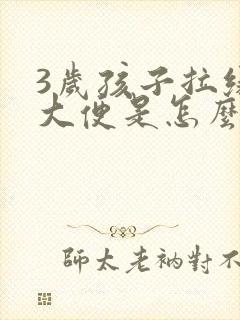 3歲孩子拉綠
大便是怎麼
師太老衲對不